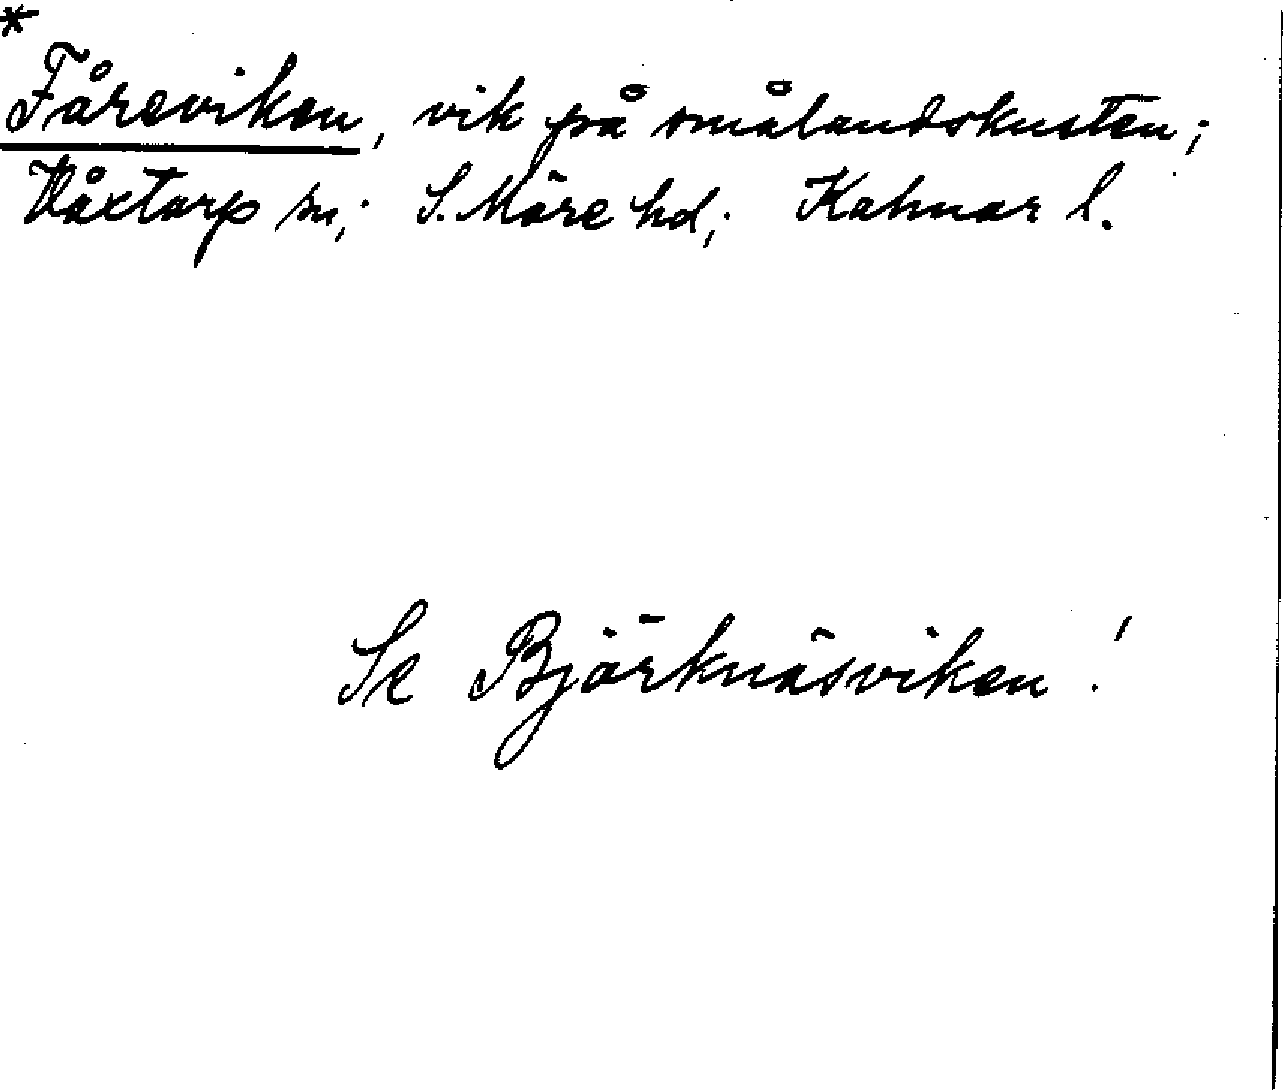 *
Fåreviken, vik på smålandskusten;
Våxtorp sn; S. Möre hd; Kalmar l.
Se Björknäsviken!